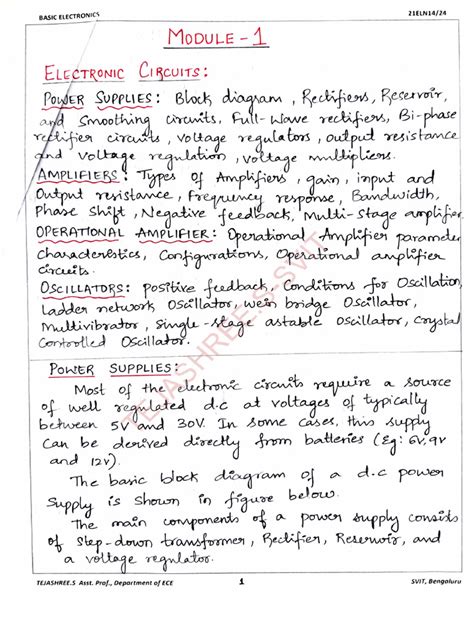 BASIC ELECTRONICS 21ELN14/24
MODULE - 1
ELECTRONIC CIRCUITS :
POWER SUPPLIES : Block diagram, Rectifiers, Reservoir,
and Smoothing circuits, Full-Wave rectifiers, Bi-phase
rectifier circuits, voltage regulators, output resistance
and voltage regulation, voltage multipliers.
AMPLIFIERS : Types of Amplifiers, gain, input and
Output resistance, Frequency response, Bandwidth,
Phase Shift, Negative feedback, Multi-stage amplifier
OPERATIONAL AMPLIFIER : Operational Amplifier parameter
Characteristics, Configurations, Operational amplifier
circuits.
OSCILLATORS : positive feedback, Conditions for Oscillation,
Ladder network Oscillator, Wein bridge Oscillator,
Multivibrator, Single-stage astable Oscillator, Crystal
Controlled Oscillator.
POWER SUPPLIES :
Most of the electronic circuits require a source
of well regulated d.c at voltages of typically
between 5V and 30V. In some cases, this supply
Can be derived directly from batteries (Eg: 6V, 9V
and 12V).
The basic block diagram of a d.c power
Supply is shown in figure below.
The main components of a power supply consists
of Step-down transformer, Rectifier, Reservoir, and
a voltage regulator.
TEJASHREE.S SVIT
TEJASHREE.S Asst. Prof., Department of ECE 1 SVIT, Bengaluru